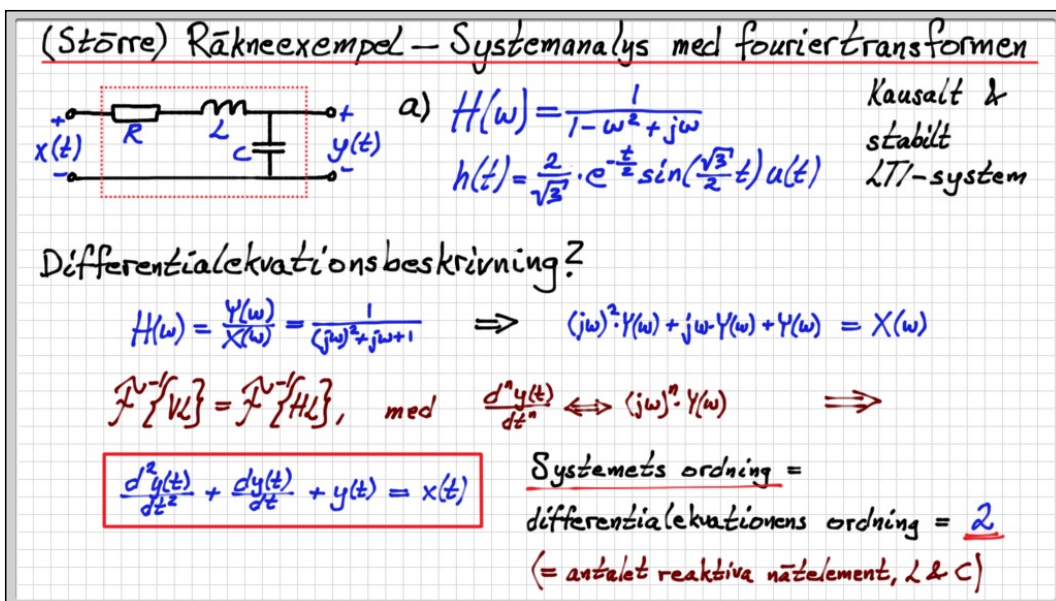 (Större) Räkneexempel – Systemanalys med fouriertransformen
+ x(t) –
R L C
+ y(t) –
a) H(ω) = 1/(1-ω²+jω)
h(t) = 2/√3 · e^(-t/2) sin(√3/2 t) u(t)
Kausalt &
stabilt
LTI-system
Differentialekvationsbeskrivning?
H(ω) = Y(ω)/X(ω) = 1/((jω)²+jω+1) ⇒ (jω)²·Y(ω) + jω·Y(ω) + Y(ω) = X(ω)
ℱ⁻¹{VL} = ℱ⁻¹{HL}, med dⁿy(t)/dtⁿ ⇔ (jω)ⁿ·Y(ω) ⇒
d²y(t)/dt² + dy(t)/dt + y(t) = x(t)
Systemets ordning =
differentialekvationens ordning = 2
(= antalet reaktiva nätelement, L & C)